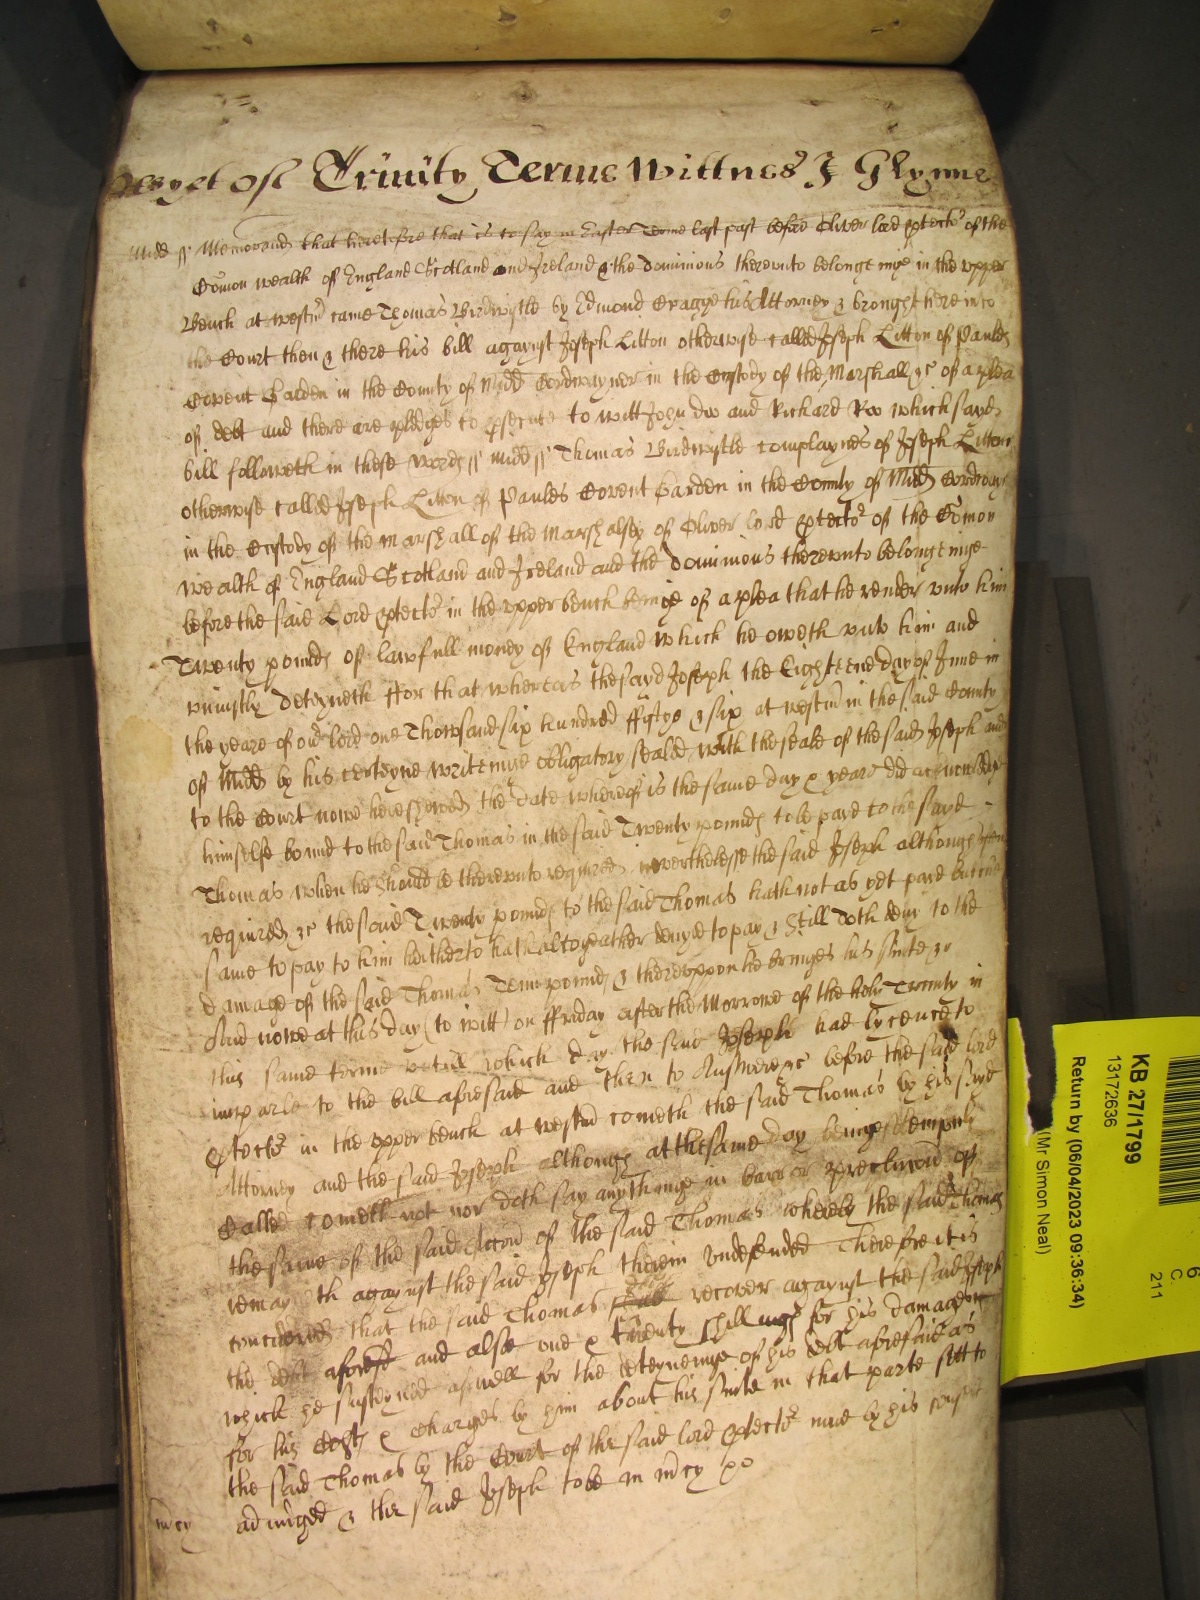 yet of Trinity Terme Wittnes J Glynne
Midd ss Memorand that heretofore that is to say in Easter Terme last past before Oliver lord Ptector of the
Comon wealth of England Scotland and Ireland & the dominions thereunto belonginge in the upper
Bench at Westmr came Thomas Birdwistle by Edmond Cragge his Attorney & brought here into
the Court then & there his bill against Joseph Litton otherwise called Joseph Litton of Paules
Covent Garden in the County of Midd Cordwayner in the Custody of the Marshall &c of a plea
of debt and there are pledges to psecute to witt John Doo and Richard Roo which sayd
bill followeth in these words ss Midd ss Thomas Birdwistle complaynes of Joseph Litton
otherwise called Joseph Litton of Paules Covent Garden in the County of Midd Cordwayner
in the Custody of the Marshall of the Marshalsey of Oliver lord Ptector of the Comon
wealth of England Scotland and Ireland and the dominions thereunto belonginge
before the said Lord Ptector in the upper bench beinge of a plea that he render unto him
Twenty pounds of lawfull money of England which he oweth unto him and
uniustly deteyneth ffor that whereas the sayd Joseph the Eighteene day of June in
the yeare of our lord one Thowsand six hundred ffiftye & six at westmr in the said County
of Midd by his certeyne writeinge obligatory sealed with the seale of the said Joseph and
to the Court nowe here shewed the date whereof is the same day & yeare did acknowledge
himselfe bound to the said Thomas in the said Twenty pounds to be payd to the said
Thomas when he should be thereunto required neverthelesse the said Joseph although often
required &c the said Twenty pounds to the said Thomas hath not as yet paid but the
same to pay to him hitherto hath altogeather denyed to pay & still doth deny to the
damage of the said Thomas Tenn pounds & thereuppon he bringes his suite &c
And nowe at this day (to witt) on ffriday after the Morrowe of the holy Trinity in
this same terme untill which day the said Joseph had lycence to
imparle to the bill aforesaid and then to Answere &c before the said lord
Ptector in the upper bench at westmr cometh the said Thomas by his sayd
Attorney and the said Joseph although at the same day beinge solempnly
Called cometh not nor doth say any thinge in barr or preclusion of
the same of the said Accon of the said Thomas whereby the said Thomas
remayneth agaynst the said Joseph therein undefended Therefore it is
considered that the said Thomas recover agaynst the said Joseph
the debt aforesd and alsoe one & twenty shillings for his damages
which he susteyned aswell for the deteyneinge of his debt aforesaid as
for his Costs & Charges by him about his suite in that parte sett to
the said Thomas by the Court of the said lord Ptector nowe by his
adiudged & the said Joseph to be in mcy &c
mcy
KB 27/1799
13172636
Return by (06/04/2023 09:36:34)
(Mr Simon Neal)
6
C.
211